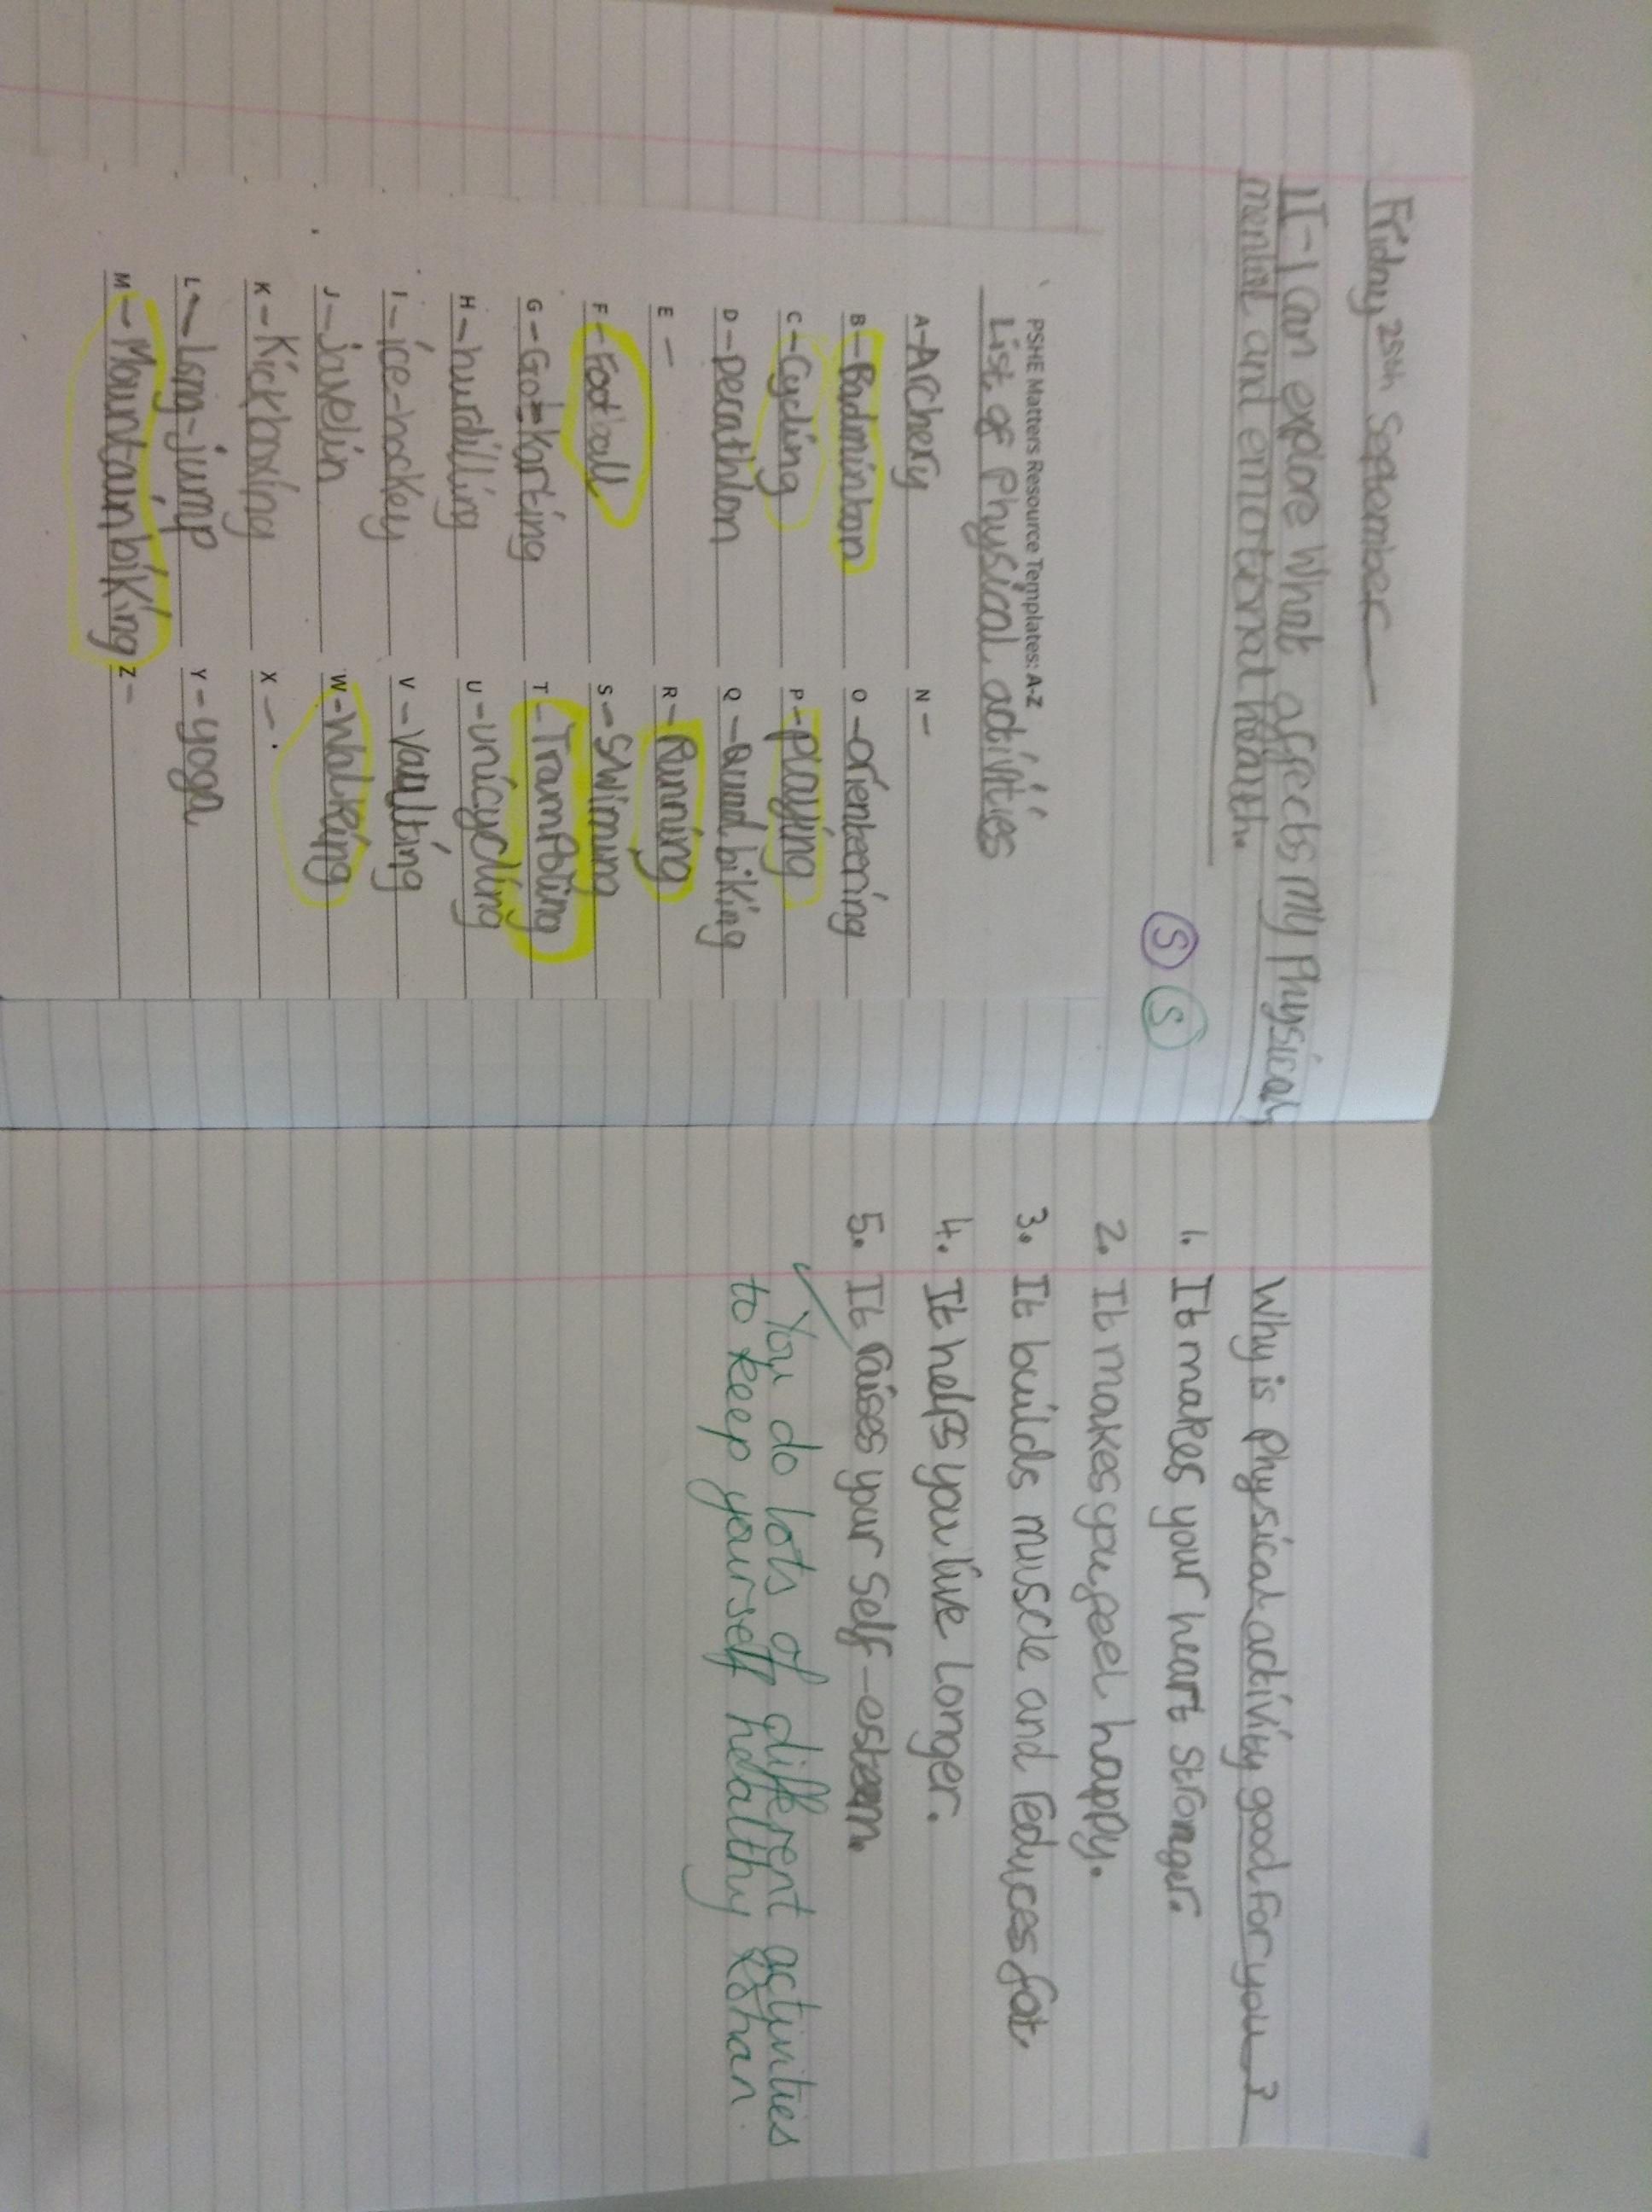 Friday 25th September
LI-I can explore what affects my physical,
mental and emotional health.
S S
PSHE Matters Resource Templates: A-Z
List of Physical activities
A-Archery
B-Badminton
C-Cycling
D-Decathlon
E-
F-Football
G-Go-Karting
H-hurdilling
I-ice-hockey
J-javelin
K-Kickboxing
L-Long-jump
M-Mountain biking
N-
O-orienteering
P-playing
Q-Quad biking
R-Running
S-Swimming
T-Trampoling
U-unicycling
V-Vaulting
W-Walking
X-.
Y-yoga
Z-
Why is Physical activity good for you?
1. It makes your heart stronger.
2. It makes you feel happy.
3. It builds muscle and reduces fat.
4. It helps you live longer.
5. It raises your self-esteem.
You do lots of different activities
to keep yourself healthy Eshan.